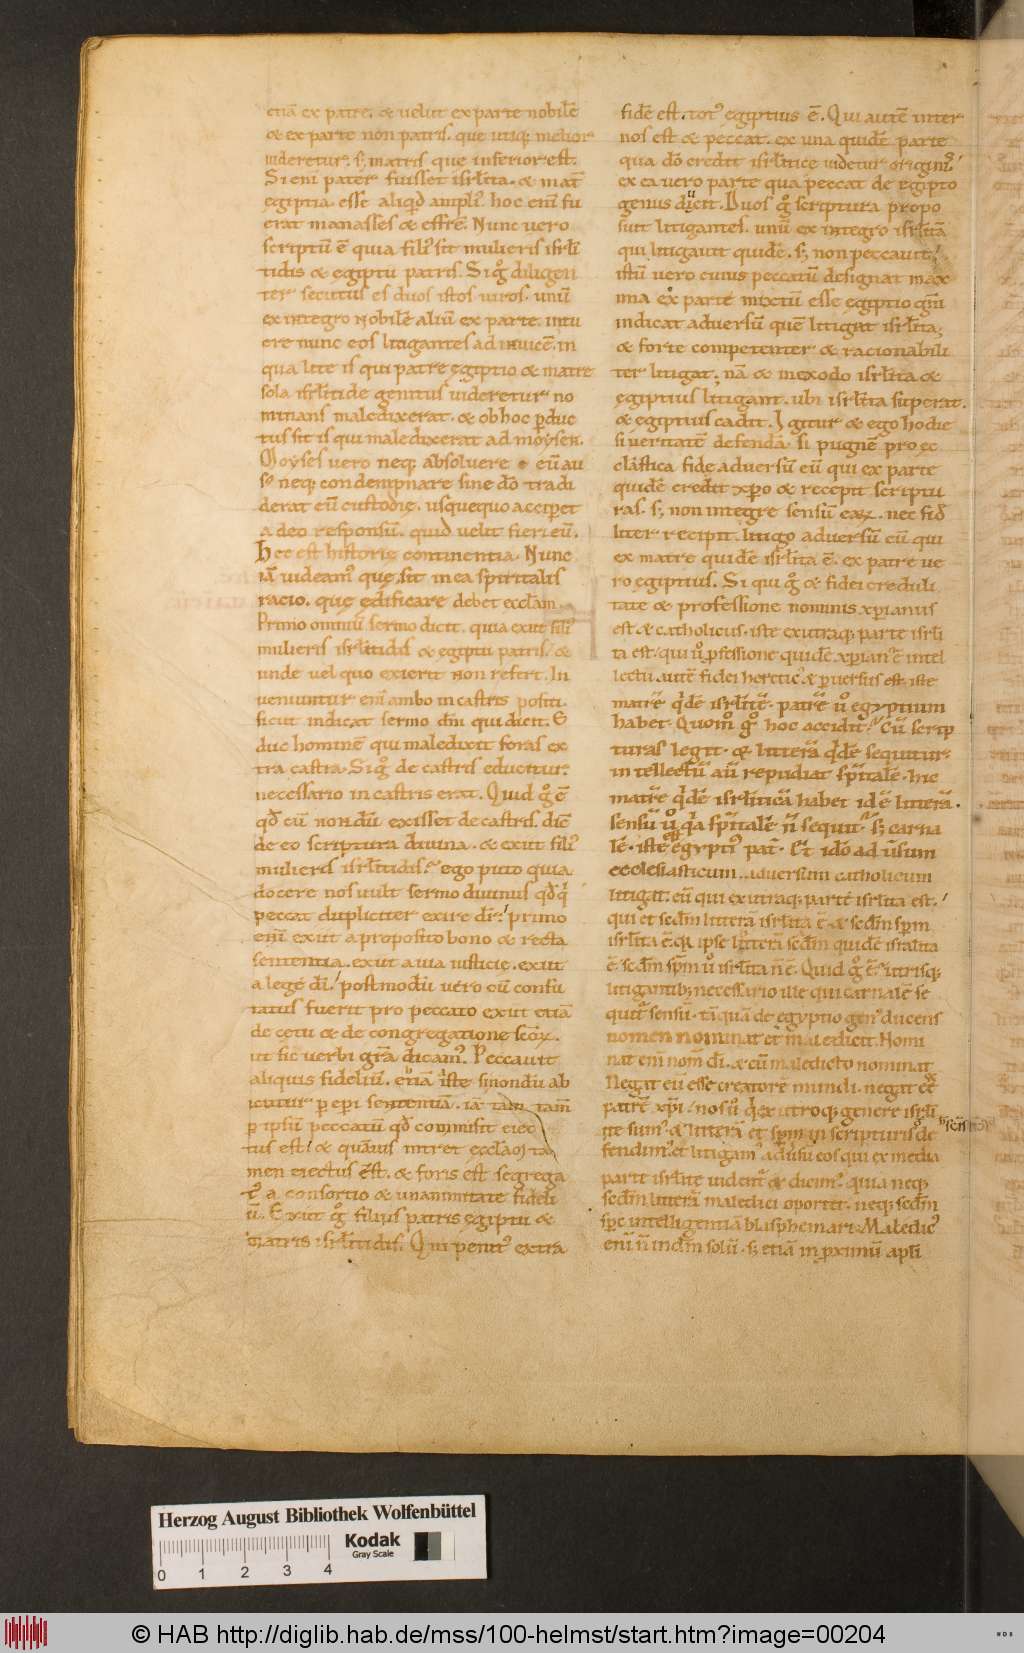 etiā ex patre. & velut ex parte nobilē
& ex parte non patris. que utiq; melior
videretur. s; matris que inferior est.
Si eni pater fuisset isrl̄ita. & mat̄
egiptia. esse aliqd̄ ampli᾽. hoc enī fu
erat manasses & effrē. Nunc vero
scriptū ē quia fili᾽ sit mulieris isrl̄i
tidis & egiptii patris. Si g̊ diligen
ter secutus es duos istos viros. unū
ex integro nobilē aliū ex parte. intu
ere nunc eos litigantes ad invicē. in
qua lite is qui patre egiptio & matre
sola isrl̄itide genitus videretur no
minans maledixerat. & ob hoc p̄duc
tus sit is qui maledixerat ad moysen.
Moyses vero neq; absolvere eū au
sus neq; condempnare sine dō tradi
derat eū custodię. usquequo acciperet
a deo responsū. quid velit fieri eū.
Hec est historie continentia. Nunc
iā videam᾽ que sit in ea spiritalis
racio. que edificare debet eccl̄am.
Primo omniū sermo dicit. quia exiit fili᾽
mulieris isrl̄itidis & egiptii patris. &
unde vel quo exierit non refert. In
veniuntur enī ambo in castris positi.
sicut indicat sermo dn̄i qui dicit. E
duc hominē qui maledixit foras ex
tra castra. Si g̊ de castris educitur.
necessario in castris erat. Quid g̊ ē
qd̄ cū nondū exisset de castris. dic̄
de eo scriptura divina. & exiit fili᾽
mulieris isrl̄itidis. ego puto quia
docere nos vult sermo divinus qd̄ q̇
peccat dupliciter exire dr̄. primo
enī exiit a proposito bono & recta
sententia. exiit a via iusticię. exiit
a lege dī. postmodū vero cū confu
tatus fuerit pro peccato exiit etiā
de cetu & de congregatione scōꝝ.
ut sic verbi gr̄a dicam᾽. Peccavit
aliquis fideliū. etiā iste si nondū ab
icitur p ep̄i sententiā. iā tam̄
p ipsū peccatū qd̄ commisit eiec
tus est. & quāvis intret eccl̄am ta
men eiectus est. & foris est segrega
t᾽ a consortio & unanimitate fideli
ū. Exiit g̊ filius patris egiptii &
matris isrl̄itidis. Qui penit᾽ extra
fidē est. tot᾽ egiptius ē. Qui autē inter
nos est & peccat. ex una quidē parte
qua dō credit isrl̄itice videtur origini᾽
ex ea vero parte qua peccat de egipto
genus ducit. Duos g̊ scriptura propo
suit litigantes. unū ex integro isrl̄itā
qui litigavit quidē. s; non peccavit.
istū vero cuius peccatū designat max
ima ex parte mixtū esse egiptio qm̄
indicat adversū quē litigat isrl̄ita;
& forte competenter & racionabili
ter litigat. nā & in exodo isrl̄ita &
egiptius litigant. ubi isrl̄ita superat.
& egiptius cadit. Igitur & ego hodie
si veritatē defendā. si pugnē pro ec
cl̄astica fide adversū eū qui ex parte
quidē credit xp̄o & recepit scriptu
ras. s; non integre sensū eaꝝ. nec fid̄
liter recipit. litigo adversū eū qui
ex matre quidē isrl̄ita ē. ex patre ve
ro egiptius. Si qui g̊ & fidei creduli
tate & professione nominis xp̄ianus
est & catholicus. iste ex utraq; parte isrl̄i
ta est. qui v̊ pfessione quidē xp̄ian᾽ ē intel
lectu autē fidei heretic᾽ & perversus est. iste
matrē qidē isrl̄itē. patrē v̊ egyptium
habet. Quom̊ g̊ hoc accidit. Cū scrip
turas legit. & litterā qidē sequitur
intellectū aū repudiat spitalē. hic
matrē qidē isrl̄iticā habet id ē litterā.
sensū v̊ qia spitalē n̄ sequit. s; carna
lē. iste egypti᾽ pat. Et ido ad usum
ecclesiasticum. adversum catholicum
litigat. eū qui ex utraq; parte isrl̄ita est.
qui et sc̄dm litterā isrl̄ita ē & sc̄dm spm̄
isrl̄ita ē. qr̄ ipse litterā sc̄dm quidē isrl̄ita
ē. sc̄dm spm̄ v̊ isrl̄ita n̄ ē. Quid g̊ ē. utrisq;
litigantib; necessario ille qui carnalē se
quit᾽ sensū. tāquā de egyptio gen᾽ ducens
nomen nominat et maledicit. Nomi
nat enī nom̄ dī. & cū maledicto nominat
Negat eū esse creatorē mundi. negat eē
patrē xp̄i. nos v̊ q ex utroq; genere isrl̄i
te sum᾽. & litterā et spm̄ in scripturis de
fendim᾽. et litigam᾽ adūsū eos qui ex media
parte isrl̄itę vident᾽ & dicim᾽. quia neq;
sc̄dm litterā maledici oportet. neq; sc̄dm
spc̄ intelligentiā blasphemari. Maledic᾽
enī n̄ in dm̄ solū. s; etiā in pximū apl̄i
Herzog August Bibliothek Wolfenbüttel
Kodak
Gray Scale
0 1 2 3 4
© HAB http://diglib.hab.de/mss/100-helmst/start.htm?image=00204